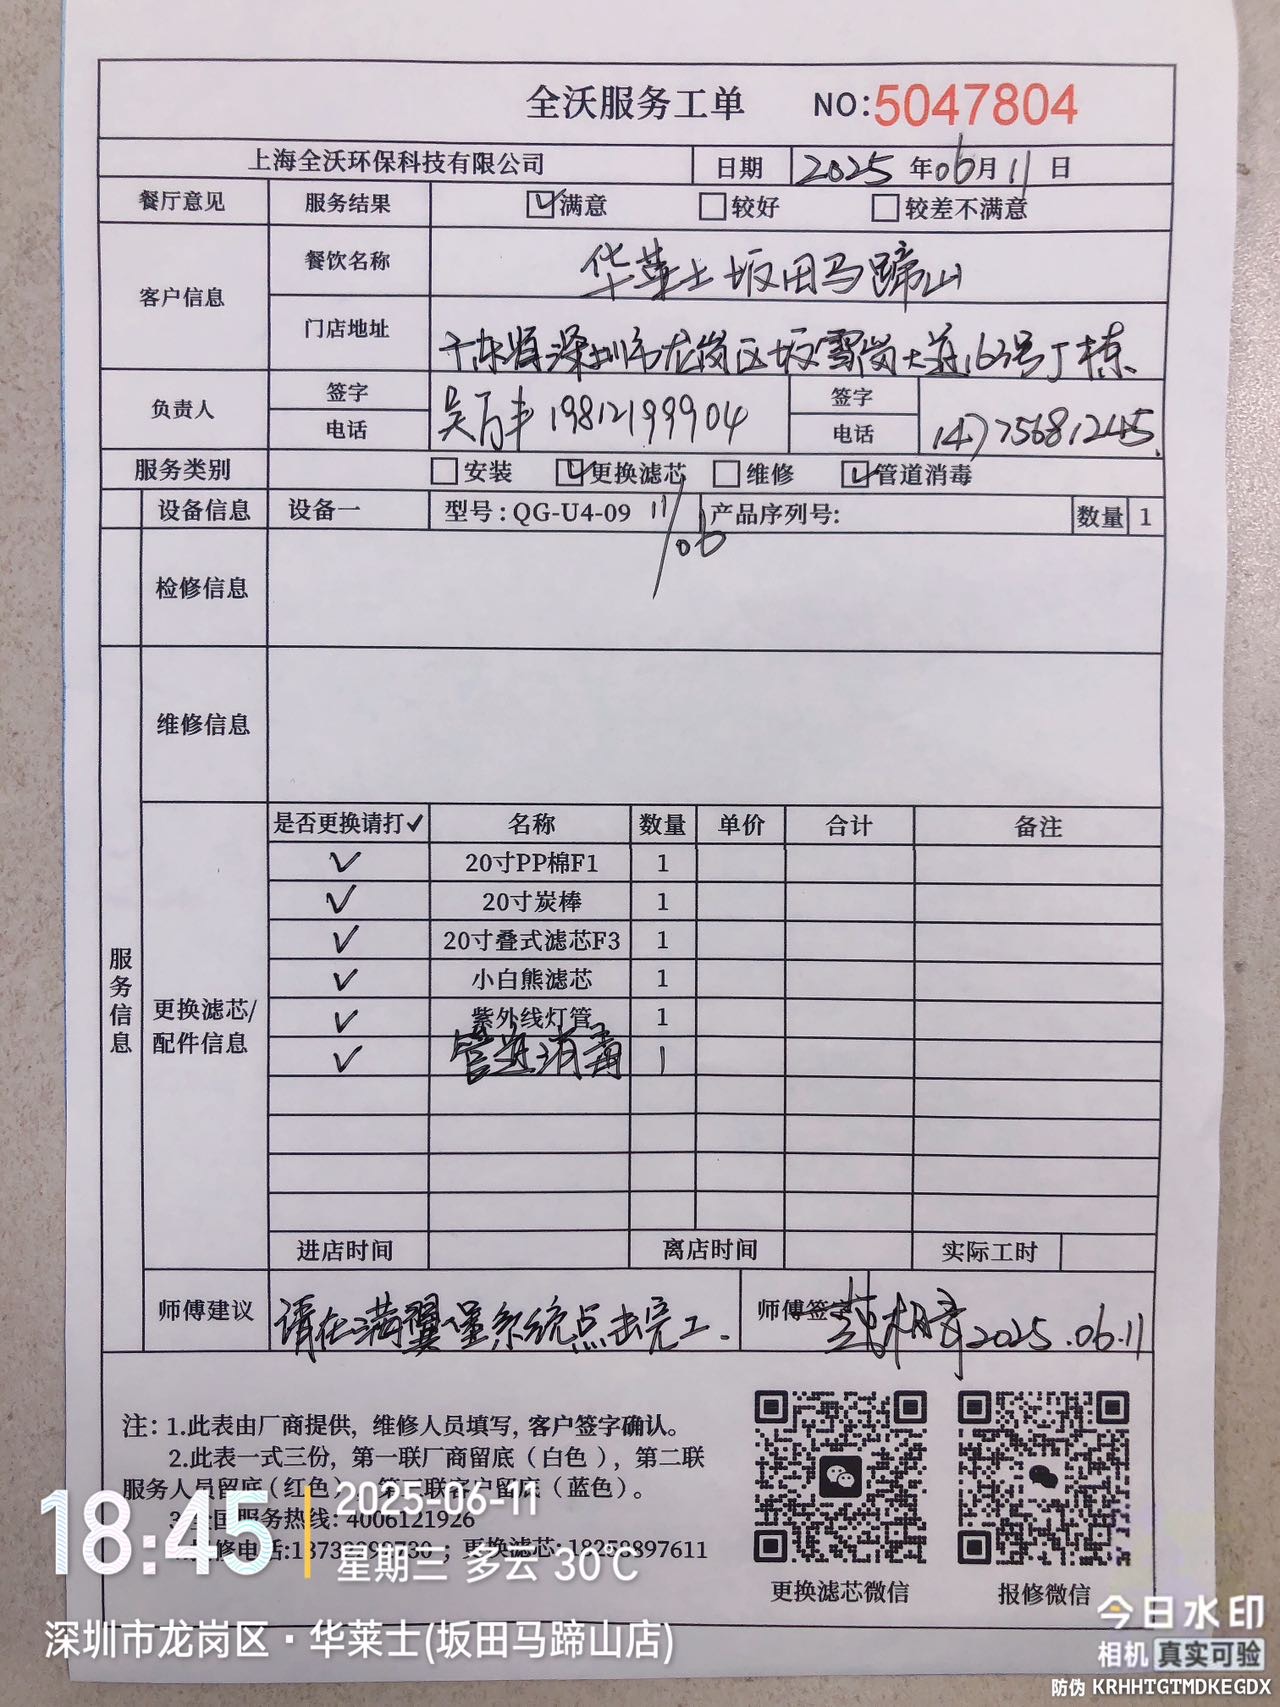 全沃服务工单 NO:5047804
上海全沃环保科技有限公司 日期 2025 年 06 月 11 日
餐厅意见 服务结果 满意 较好 较差不满意
客户信息 餐饮名称 华莱士坂田马蹄山
门店地址 广东省深圳市龙岗区坂雪岗大道163号丁栋
负责人 签字 电话 吴万丰 19812199904 签字 电话 14775681245
服务类别 安装 更换滤芯 维修 管道消毒
设备信息 设备一 型号:QG-U4-09 11/06 产品序列号: 数量 1
检修信息
维修信息
服务信息
更换滤芯/配件信息
是否更换请打✓ 名称 数量 单价 合计 备注
✓ 20寸PP棉F1 1
✓ 20寸炭棒 1
✓ 20寸叠式滤芯F3 1
✓ 小白熊滤芯 1
✓ 紫外线灯管 1
✓ 管道消毒 1
进店时间 离店时间 实际工时
师傅建议 请在满翼堡系统点击完工. 师傅签字 2025.06.11
注: 1.此表由厂商提供, 维修人员填写, 客户签字确认。
2.此表一式三份, 第一联厂商留底(白色), 第二联
服务人员留底(红色), 第三联客户留底(蓝色)。
3.全国服务热线: 4006121926
报修电话: ; 更换滤芯: 18258897611
更换滤芯微信 报修微信
18:45 2025-06-11
星期三 多云 30℃
深圳市龙岗区·华莱士(坂田马蹄山店)
今日水印
相机 真实可验
防伪 KRHHTGTMDKEGDX